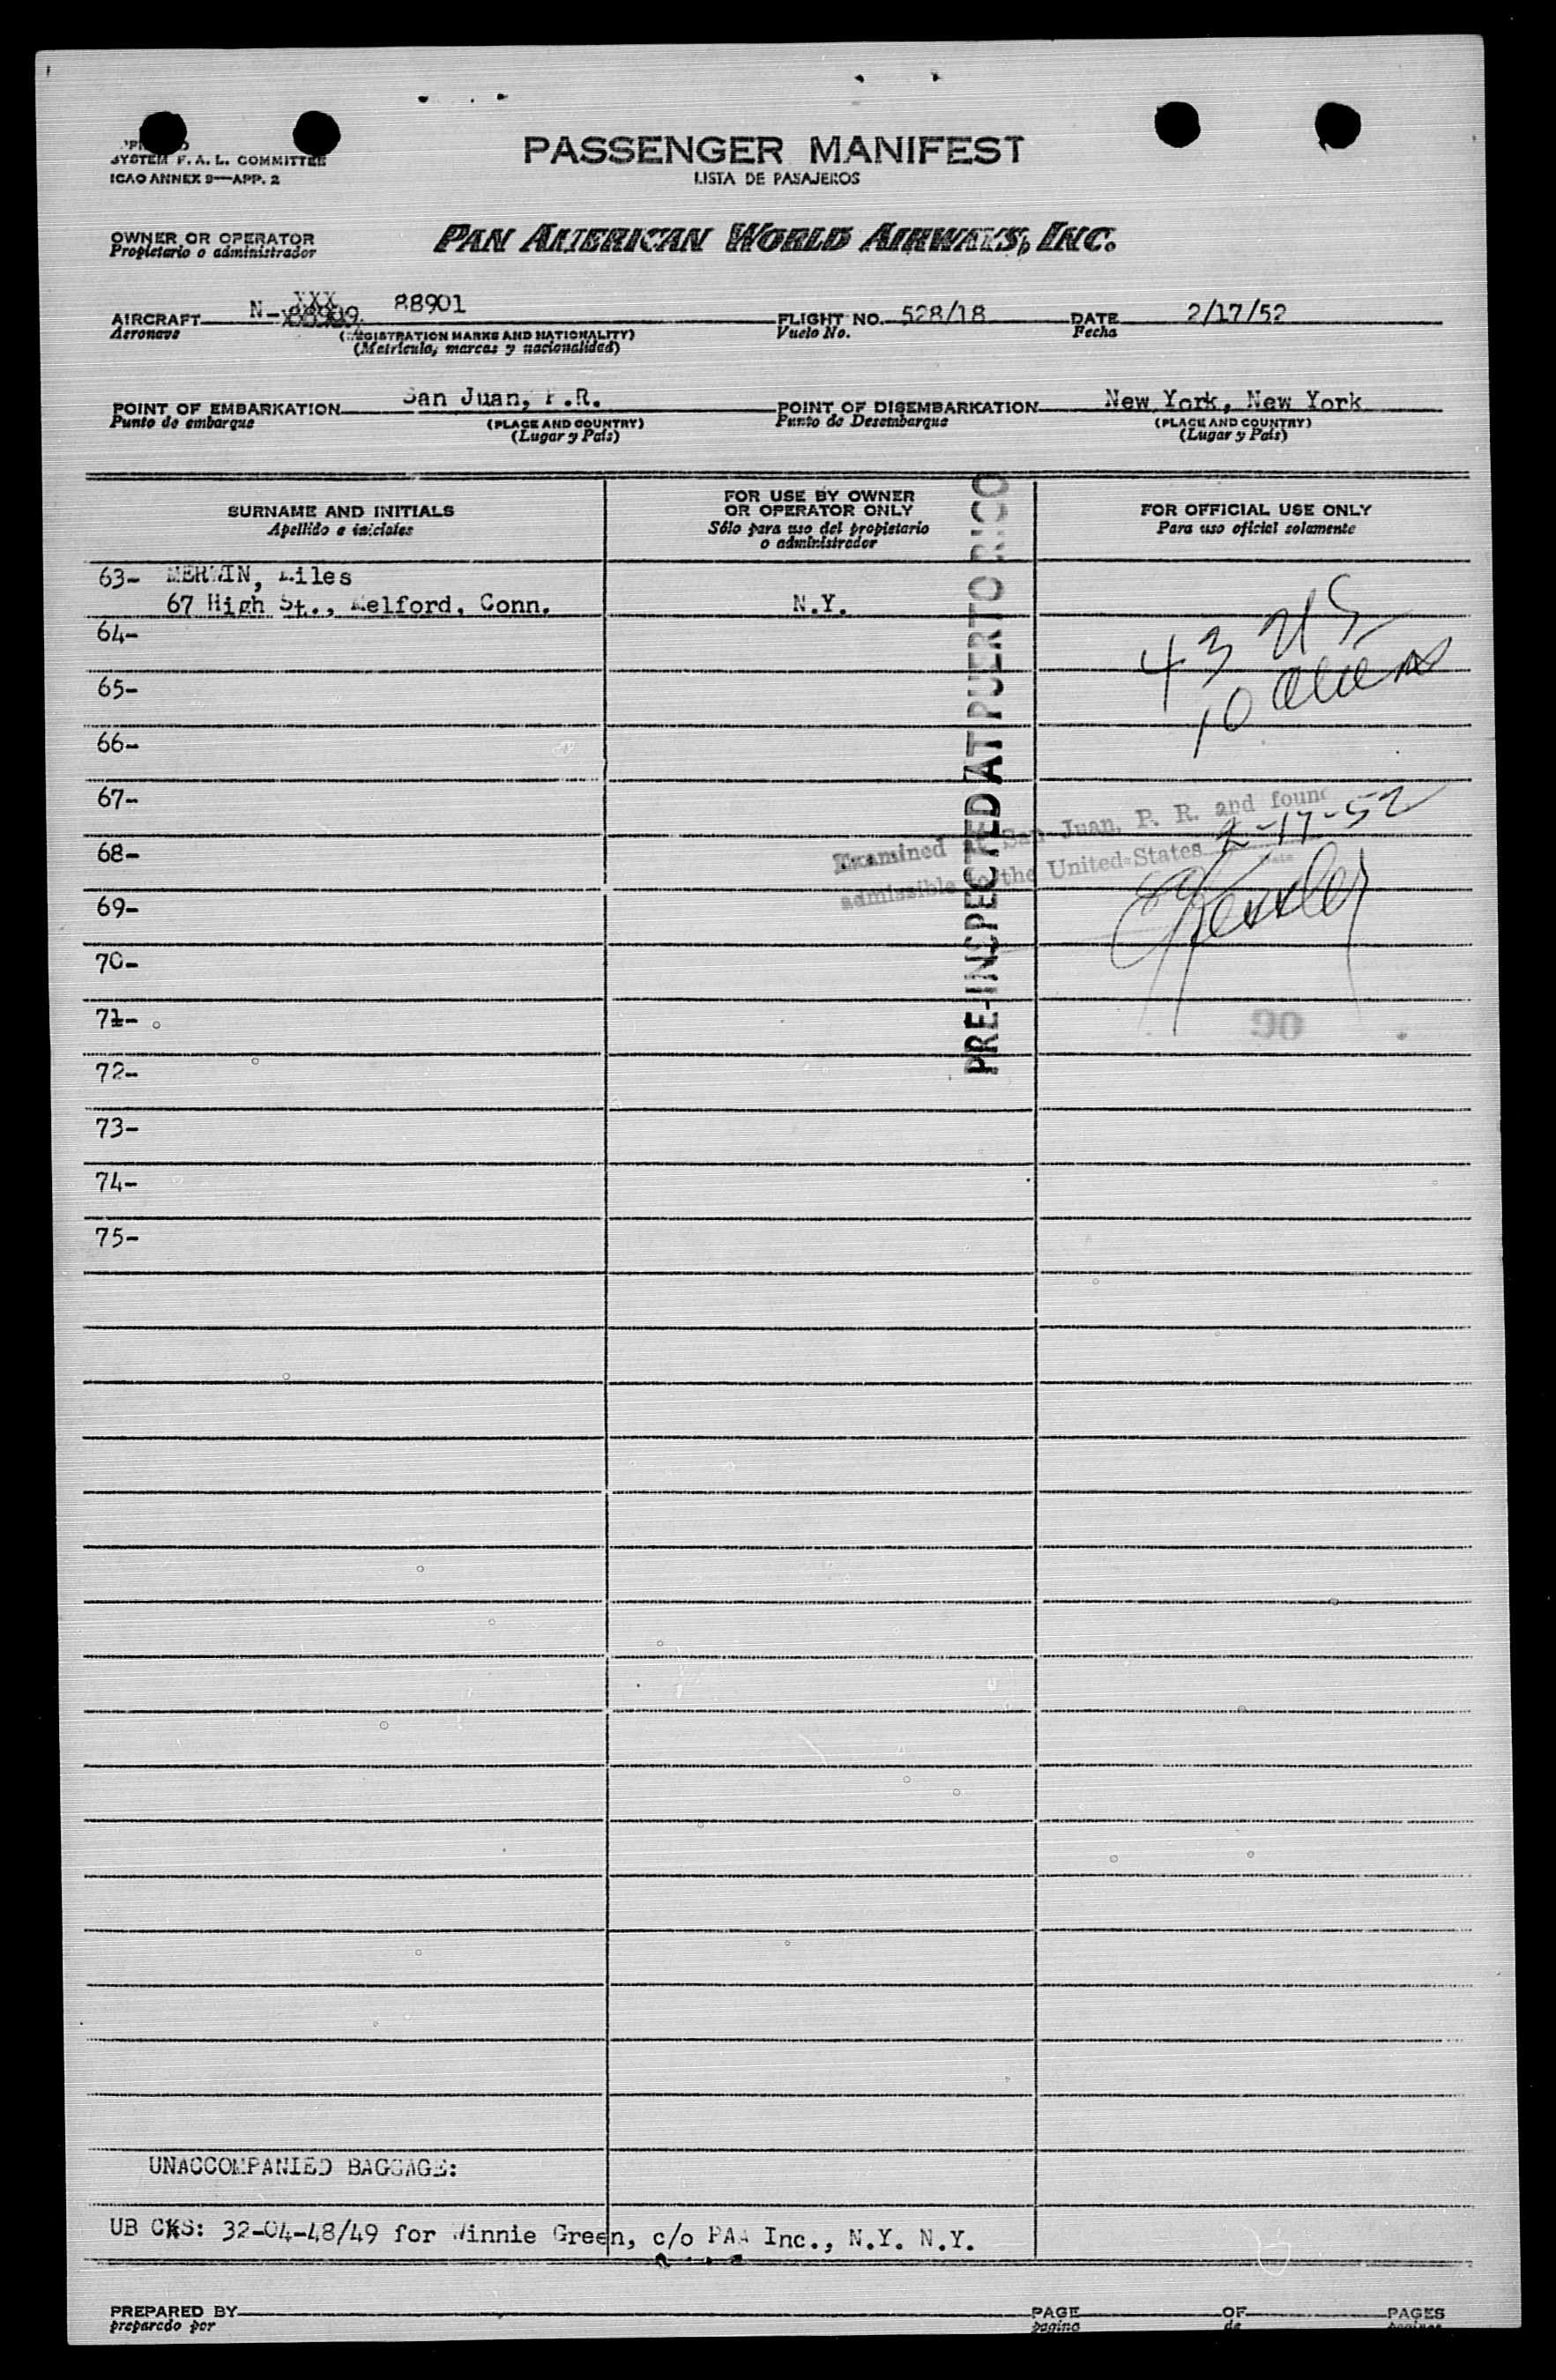 SYSTEM F. A. L. COMMITTEE
ICAO ANNEX 9—APP. 2
PASSENGER MANIFEST
LISTA DE PASAJEROS
OWNER OR OPERATOR
Propietario o administrador
PAN AMERICAN WORLD AIRWAYS, INC.
AIRCRAFT N- XXX 88909 88901
Aeronave
(REGISTRATION MARKS AND NATIONALITY)
(Matricula, marcas y nacionalidad)
FLIGHT NO. 528/18
Vuelo No.
DATE 2/17/52
Fecha
POINT OF EMBARKATION San Juan, P.R.
Punto de embarque
(PLACE AND COUNTRY)
(Lugar y País)
POINT OF DISEMBARKATION New York, New York
Punto de Desembarque
(PLACE AND COUNTRY)
(Lugar y País)
SURNAME AND INITIALS
Apellido e iniciales
FOR USE BY OWNER
OR OPERATOR ONLY
Sólo para uso del propietario
o administrador
FOR OFFICIAL USE ONLY
Para uso oficial solamente
63- MERWIN, Miles
67 High St., Melford, Conn. N.Y.
64-
65-
66-
67-
68-
69-
70-
71-
72-
73-
74-
75-
43 US
10 aliens
PRE-INSPECTED AT PUERTO RICO
Examined at San Juan, P. R. and found
admissible to the United States 2-17-52
Date
UNACCOMPANIED BAGGAGE:
UB CKS: 32-04-48/49 for Winnie Green, c/o PAA Inc., N.Y. N.Y.
PREPARED BY
preparado por
PAGE
pagina
OF
de
PAGES
paginas